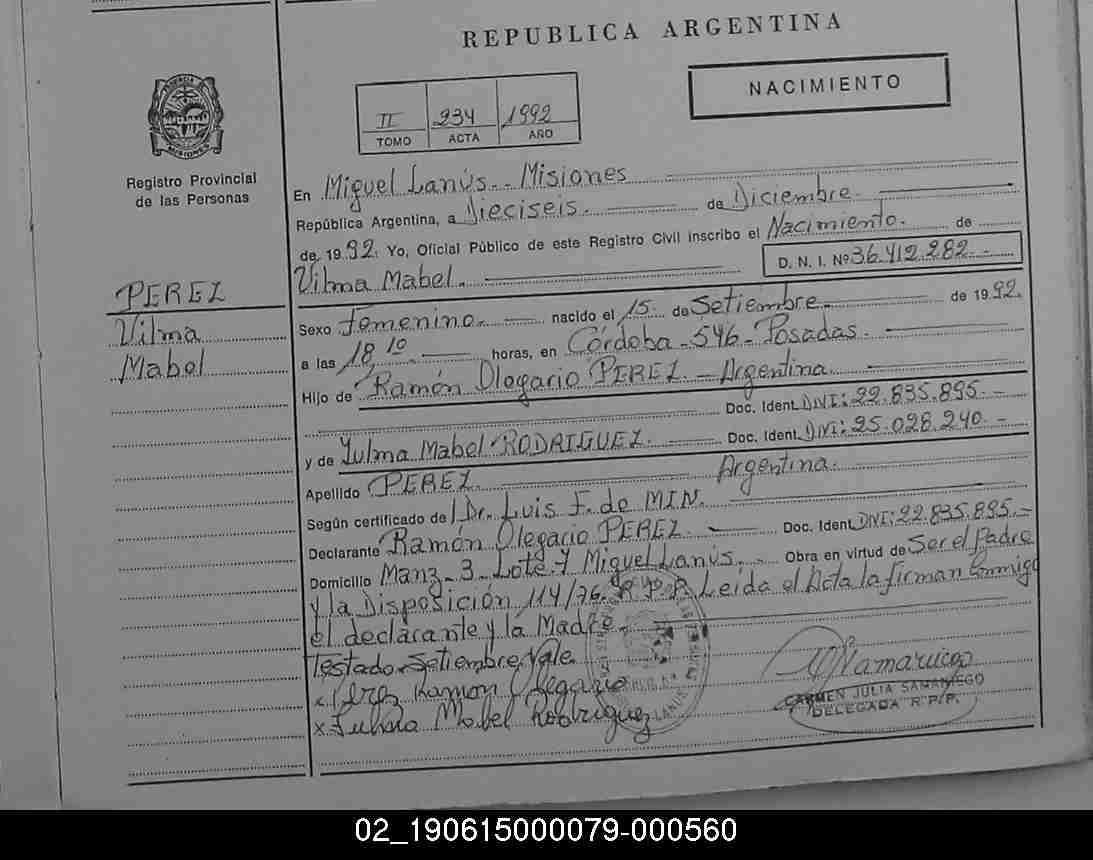 REPUBLICA ARGENTINA
NACIMIENTO
II 234 1992
TOMO ACTA AÑO
PROVINCIA DE MISIONES
Registro Provincial
de las Personas
PEREZ
Vilma
Mabel
En Miguel Lanús - Misiones
República Argentina, a Dieciseis de Diciembre
de 1992. Yo, Oficial Público de este Registro Civil inscribo el Nacimiento de
Vilma Mabel. D. N. I. Nº 36.412.282
Sexo Femenino nacido el 15 de Setiembre de 1992.
a las 18 10 horas, en Córdoba - 546 - Posadas.
Hijo de Ramón Olegario PEREZ - Argentina
Doc. Ident. DNI: 22.835.895.-
y de Julma Mabel RODRIGUEZ. Doc. Ident. DNI: 25.028.240.-
Apellido PEREZ. Argentina.
Según certificado de Dr. Luis F. de MIN.
Declarante Ramón Olegario PEREZ. Doc. Ident. DNI: 22.835.895.-
Domicilio Manz - 3 - Lote. 7 Miguel Lanús. Obra en virtud de Ser el Padre
y la Disposición 114/76. R.P.P. Leída el Acta la firman conmigo
el declarante y la Madre.
Testado - Setiembre, Vale.
x Perez Ramon Olegario
x Julma Mabel Rodriguez
CARMEN JULIA SAMANIEGO
DELEGADA R.P.P.
02_190615000079-000560